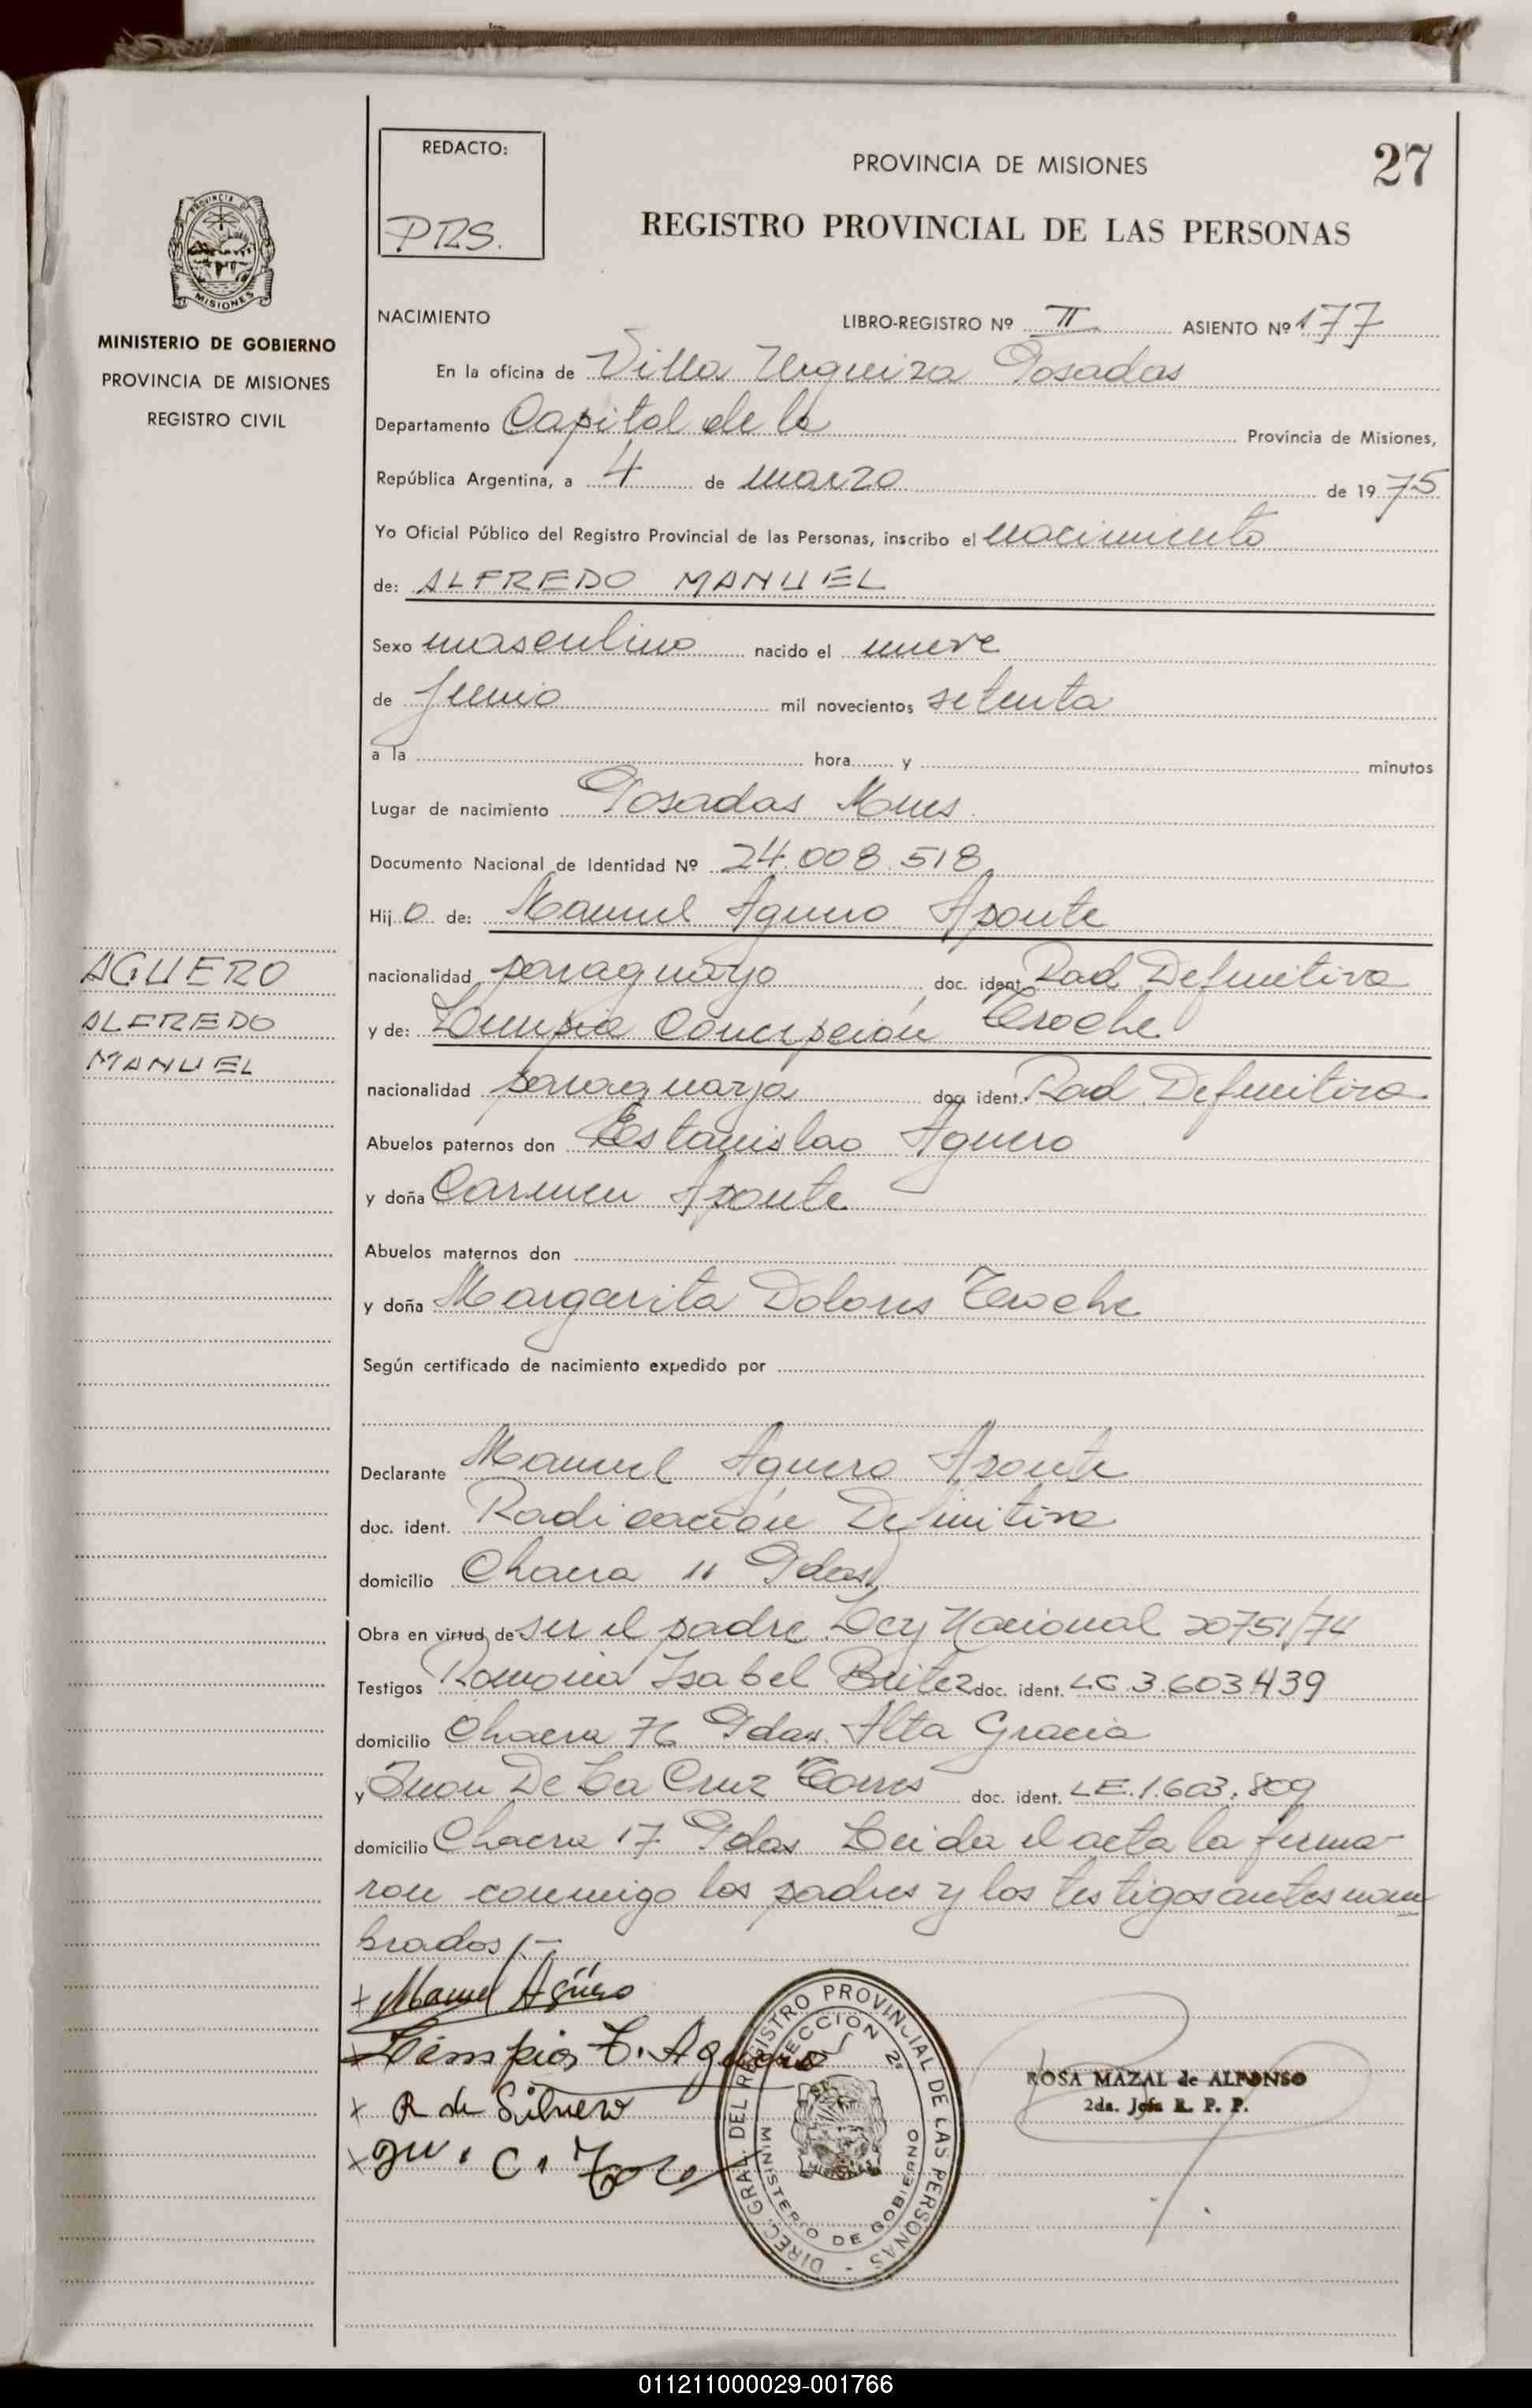 27
REDACTO:
PRS.
PROVINCIA DE MISIONES
REGISTRO PROVINCIAL DE LAS PERSONAS
PROVINCIA DE
MISIONES
MINISTERIO DE GOBIERNO
PROVINCIA DE MISIONES
REGISTRO CIVIL
NACIMIENTO LIBRO-REGISTRO Nº II ASIENTO Nº 177
En la oficina de Villa Urquiza Posadas
Departamento Capital de la Provincia de Misiones,
República Argentina, a 4 de marzo de 1975
Yo Oficial Público del Registro Provincial de las Personas, inscribo el nacimiento
de: ALFREDO MANUEL
Sexo masculino nacido el nueve
de Junio mil novecientos setenta
a la hora y minutos
Lugar de nacimiento Posadas Mnes
Documento Nacional de Identidad Nº 24.008.518
Hijo de: Manuel Aguero Aponte
AGUERO
ALFREDO
MANUEL
nacionalidad paraguayo doc. ident. Rad Definitiva
y de: Concepción Troche
nacionalidad paraguaya doc. ident. Rad Definitiva
Abuelos paternos don Estanislao Aguero
y doña Carmen Aponte
Abuelos maternos don
y doña Margarita Dolores Troche
Según certificado de nacimiento expedido por
Declarante Manuel Aguero Aponte
doc. ident. Radicación Definitiva
domicilio Chacra 11 Pdas
Obra en virtud de ser el padre Ley Nacional 20751/74
Testigos Ramona Isabel Britez doc. ident. LC 3.603.439
domicilio Chacra 76 Pdas. Alta Gracia
y Juan De La Cruz Torres doc. ident. LE. 1.603.809
domicilio Chacra 17 Pdas Leida el acta la firma-
ron conmigo los padres y los testigos antes nom
brados/.-
x Manuel Agüero
C. Aguero
x R de Silvero
x C. 
DIREC. GRAL. DEL REGISTRO PROVINCIAL DE LAS PERSONAS
SECCION 2ª
MINISTERIO DE GOBIERNO
ROSA MAZAL de ALFONSO
2da. Jefa R. P. P.
011211000029-001766